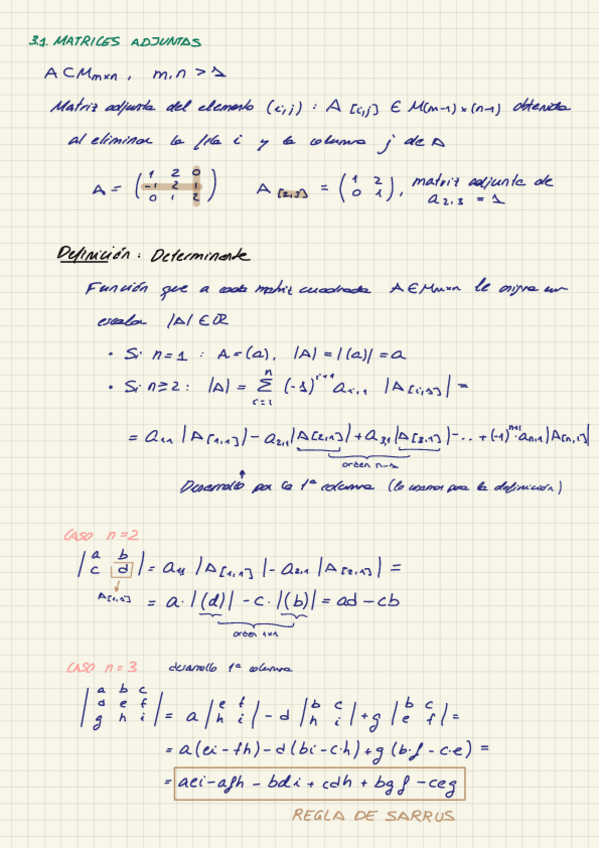 3.1. MATRICES ADJUNTAS
A ⊂ M m×n , m,n > 1
Matriz adjunta del elemento (i,j) : A [i,j] ∈ M(m-1)×(n-1) obtenida
al eliminar la fila i y la columna j de A
A = ( 1 2 0
-1 2 1
0 1 2 )
A [2,3] = ( 1 2
0 1 ), matriz adjunta de
a 2,3 = 1
Definición : Determinante
Función que a cada matriz cuadrada A ∈ M n×n le asigna un
escalar |A| ∈ ℝ
• Si n=1 : A=(a), |A| = |(a)| = a
• Si n≥2 : |A| = Σ (i=1, n) (-1)^i+1 a i,1 |A[i,1]| =
= a 1,1 |A[1,1]| - a 2,1 |A[2,1]| + a 3,1 |A[3,1]| - ... + (-1)^n+1 · a n,1 |A[n,1]|
orden n-1
Desarrollo por la 1ª columna (lo usamos para la definición)
CASO n=2
| a b
c d | = a 1,1 |A[1,1]| - a 2,1 |A[2,1]| =
A[1,1]
= a · |(d)| - c · |(b)| = ad - cb
orden 1×1
CASO n=3 desarrollo 1ª columna
| a b c
d e f
g h i | = a | e f
h i | - d | b c
h i | + g | b c
e f | =
= a(ei - fh) - d(bi - c·h) + g(b·f - c·e) =
= aei - afh - bdi + cdh + bgf - ceg
REGLA DE SARRUS